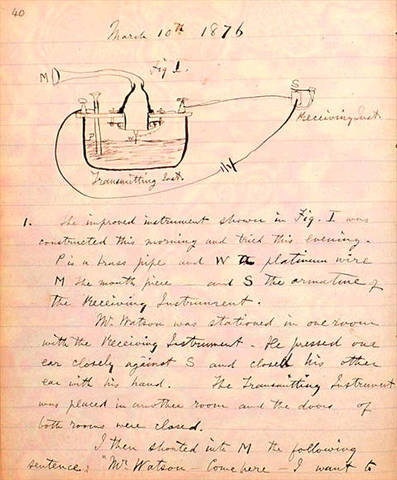 40
March 10th 1876
Fig 1.
M
S
Receiving Inst.
P
W
Transmitting Inst.
1. The improved instrument shown in Fig. I was
constructed this morning and tried this evening.
P is a brass pipe and W a platinum wire
M the mouth piece and S the armature of
the Receiving Instrument.
Mr. Watson was stationed in one room
with the Receiving Instrument. He pressed one
ear closely against S and closed his other
ear with his hand. The Transmitting Instrument
was placed in another room and the doors of
both rooms were closed.
I then shouted into M the following
sentence: "Mr. Watson – Come here – I want to